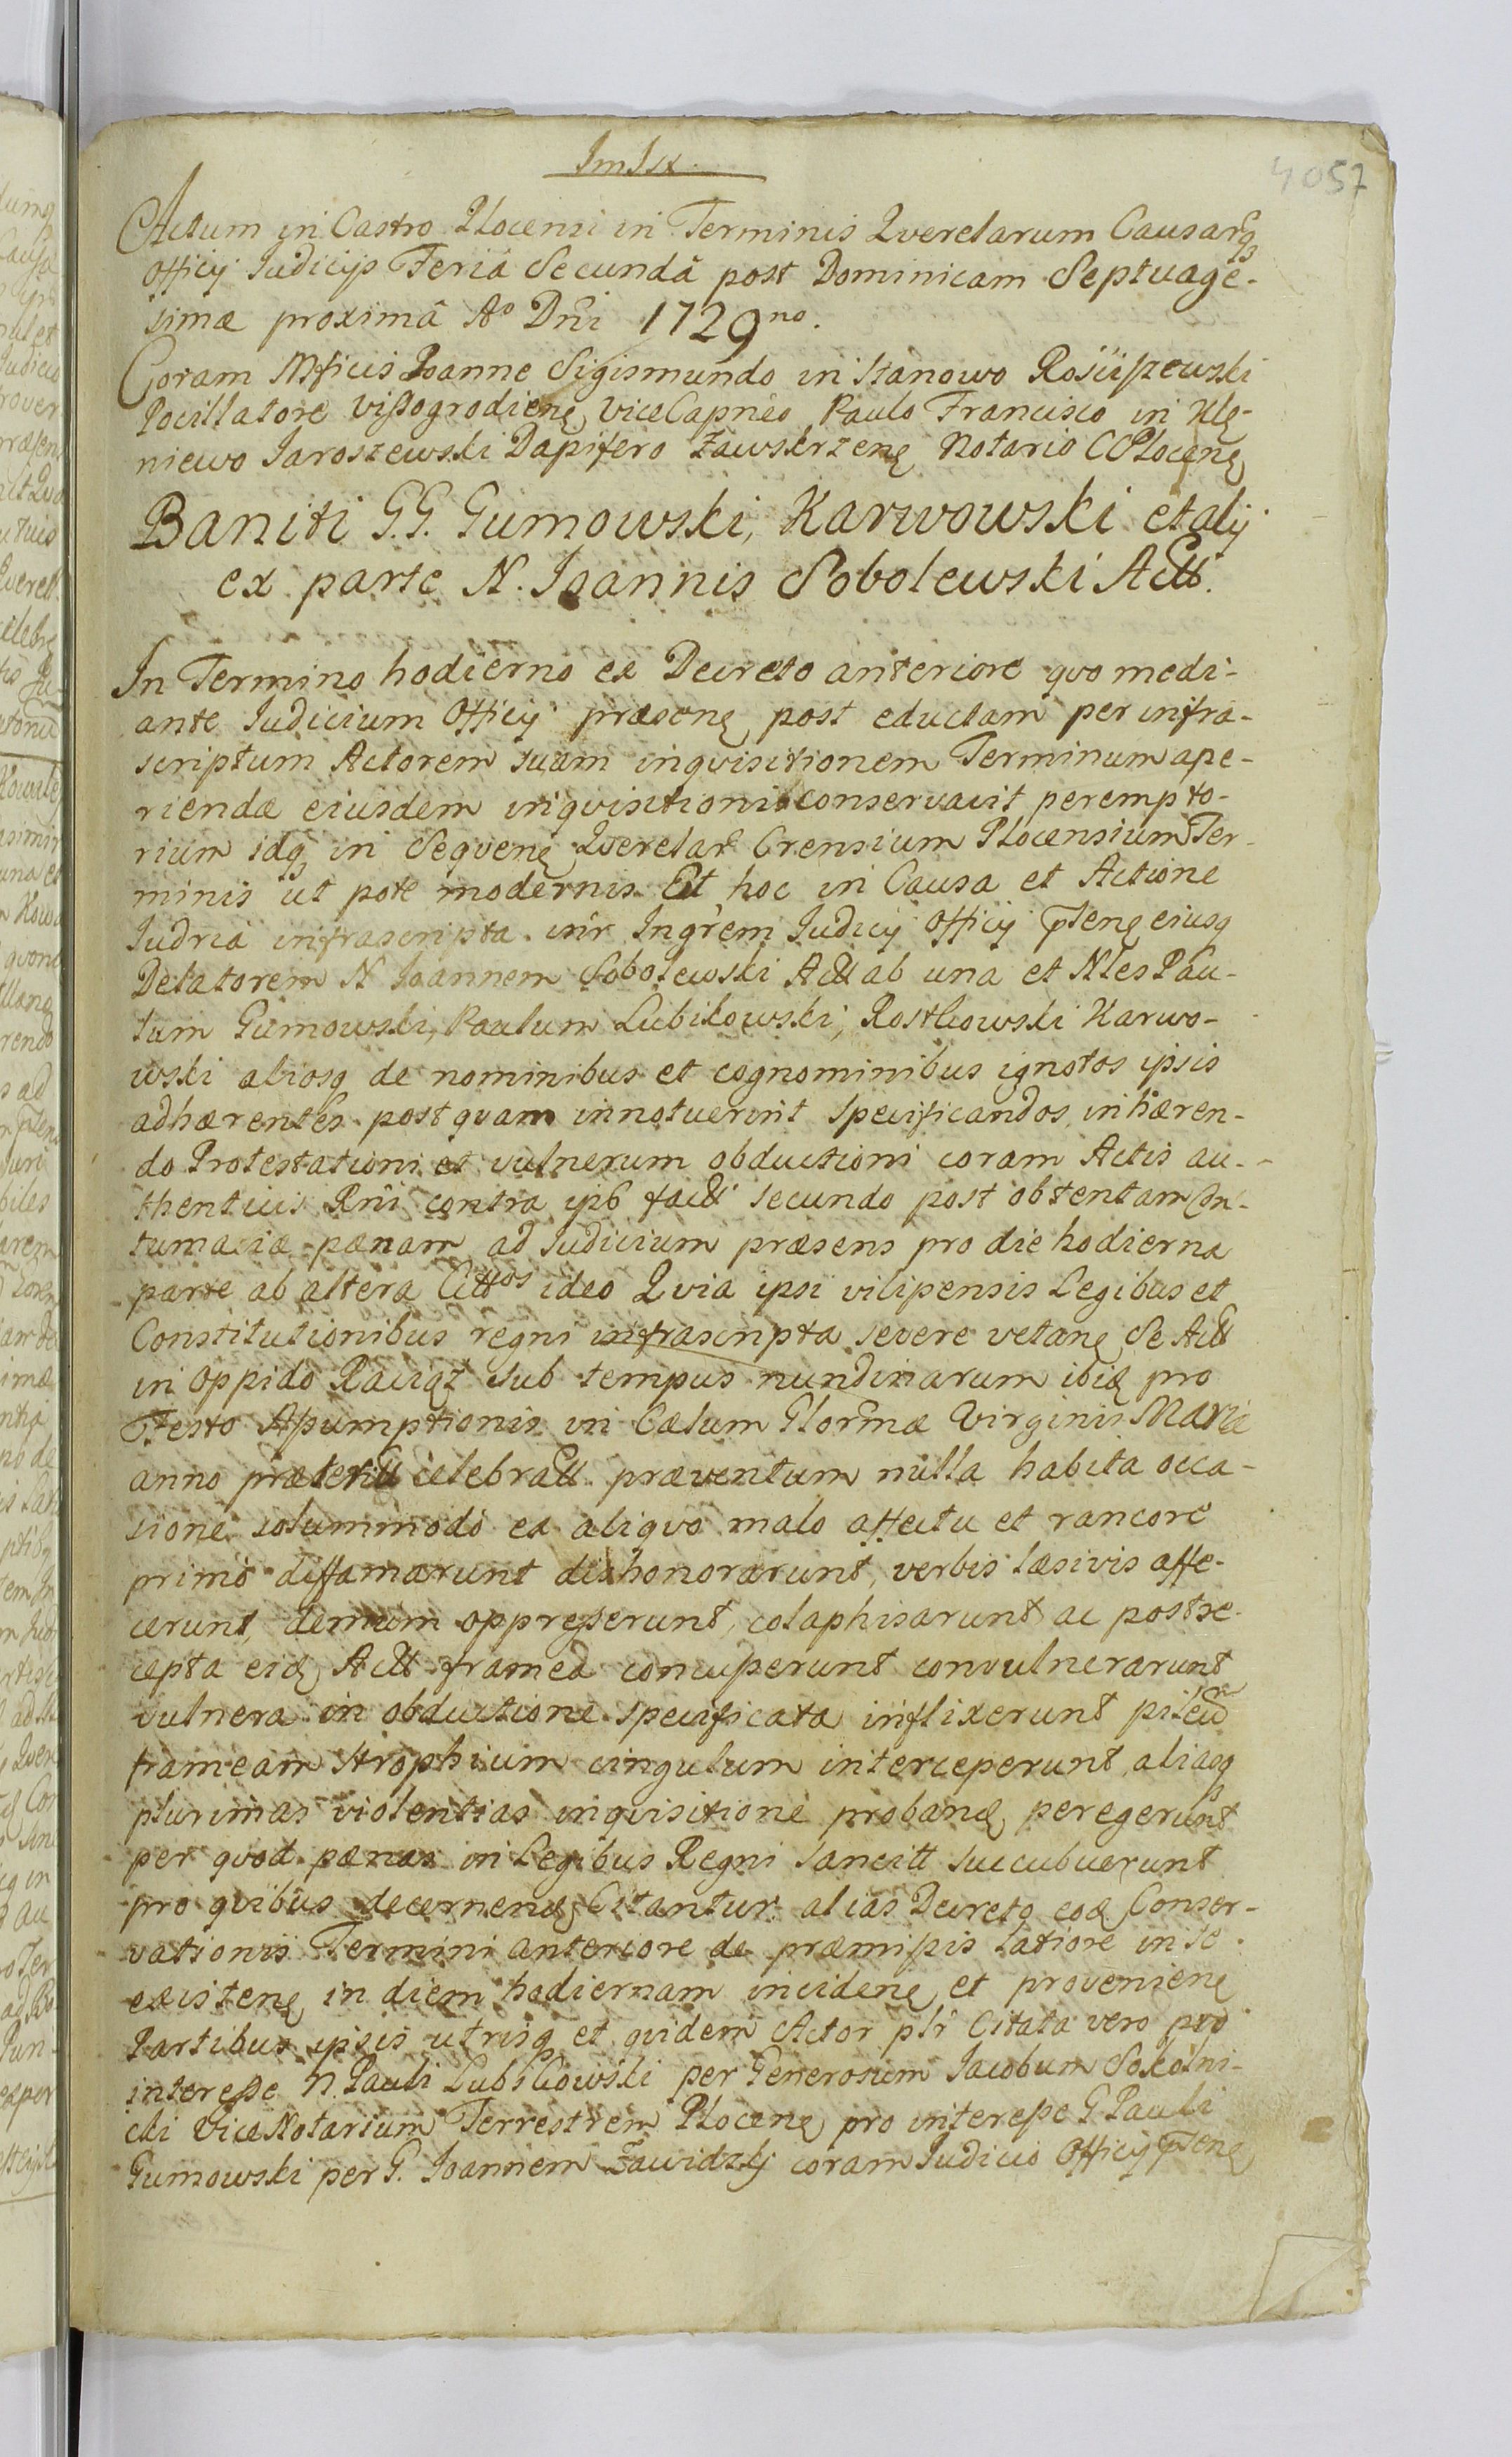 ImJsx.
4057
Actum in Castro Plocensi in Terminis Querelarum Causarq
Officij Judicijs Feria Secundâ post Dominicam Septuage-
simæ proximâ Aº Dni 1729no.
Coram Mficis Joanne Sigismundo in Stanowo Rosciszewski
Pocillatore Vissogrodienę ViceCapneo, Paulo Francisco in Klę-
niewo Jaroszewski Dapifero Zawskrzenę Notario CPlocenę
Baniti G.G. Gumowski, Karwowski et alij
ex parte N. Joannis Sobolewski Act.
In Termino hodierno ex Decreto anteriore quo medi-
ante Judicium Officij præsenę post eductam per infra-
scriptum Actorem suam inquisitionem Terminum ape-
riendæ eiusdem inquisitionis conservavit perempto-
rium idq in Sequenę Querelar Crensium Plocensium Ter-
minis ut pote modernis. Et hoc in Causa et Actione
Judria infrascripta inr Ingrem Judicij Officij pntenę eiusq
Delatorem N Joannem Sobolewski Act ab una et Nles Pau-
lum Gumowski, Paulum Lubikowski, Rostkowski Karwo-
wski aliosq de nominibus et cognominibus ignotos ipsis
adhærentes postquam innotuerint specificandos, inhæren-
do Protestationi et vulnerum obductioni coram Actis au-
thenticis Rni contra ips fact secundo post obtentam Con-
tumaciæ pœnam ad Judicium præsens pro die hodierna
parte ab altera Cittos ideo Quia ipsi vilipensis Legibus et
Constitutionibus regni infrascripta severe vetanę Se Act
in Oppido Raciąż sub tempus nundinarum ibię pro
Festo Assumptionis in Cælum Glormæ Virginis Mariæ
anno præterit celebratt præventum nulla habita occa-
sione solummodo ex aliquo malo affectu et rancore
primo diffamarunt dishonorarunt, verbis læsivis affe-
cerunt, demum oppresserunt, colaphisarunt ac post re-
cepta eię Act framea concusserunt convulnerarunt
vulnera in obductione specificata inflixerunt pileū
frameam strophium cingulum interceperunt, aliasq
plurimas violentias inquisitione probanę peregerunt
per quod pœnas in Legibus Regni Sancitt succubuerunt
pro quibus decernenę Citantur alias Decreto eoę Conser-
vationis Termini anteriore de præmissis latiore in se
existenę in diem hodiernam incidenę et provenienę
Partibus ipsis utrisq et quidem Actor plr Citata vero pro
interesse N. Pauli Lubikowski per Generosum Jacobum Sokolni-
cki ViceNotarium Terrestrem Plocenę pro interesse G Pauli
Gumowski per G. Joannem Zawidzkj coram Judicio Officij pntenę